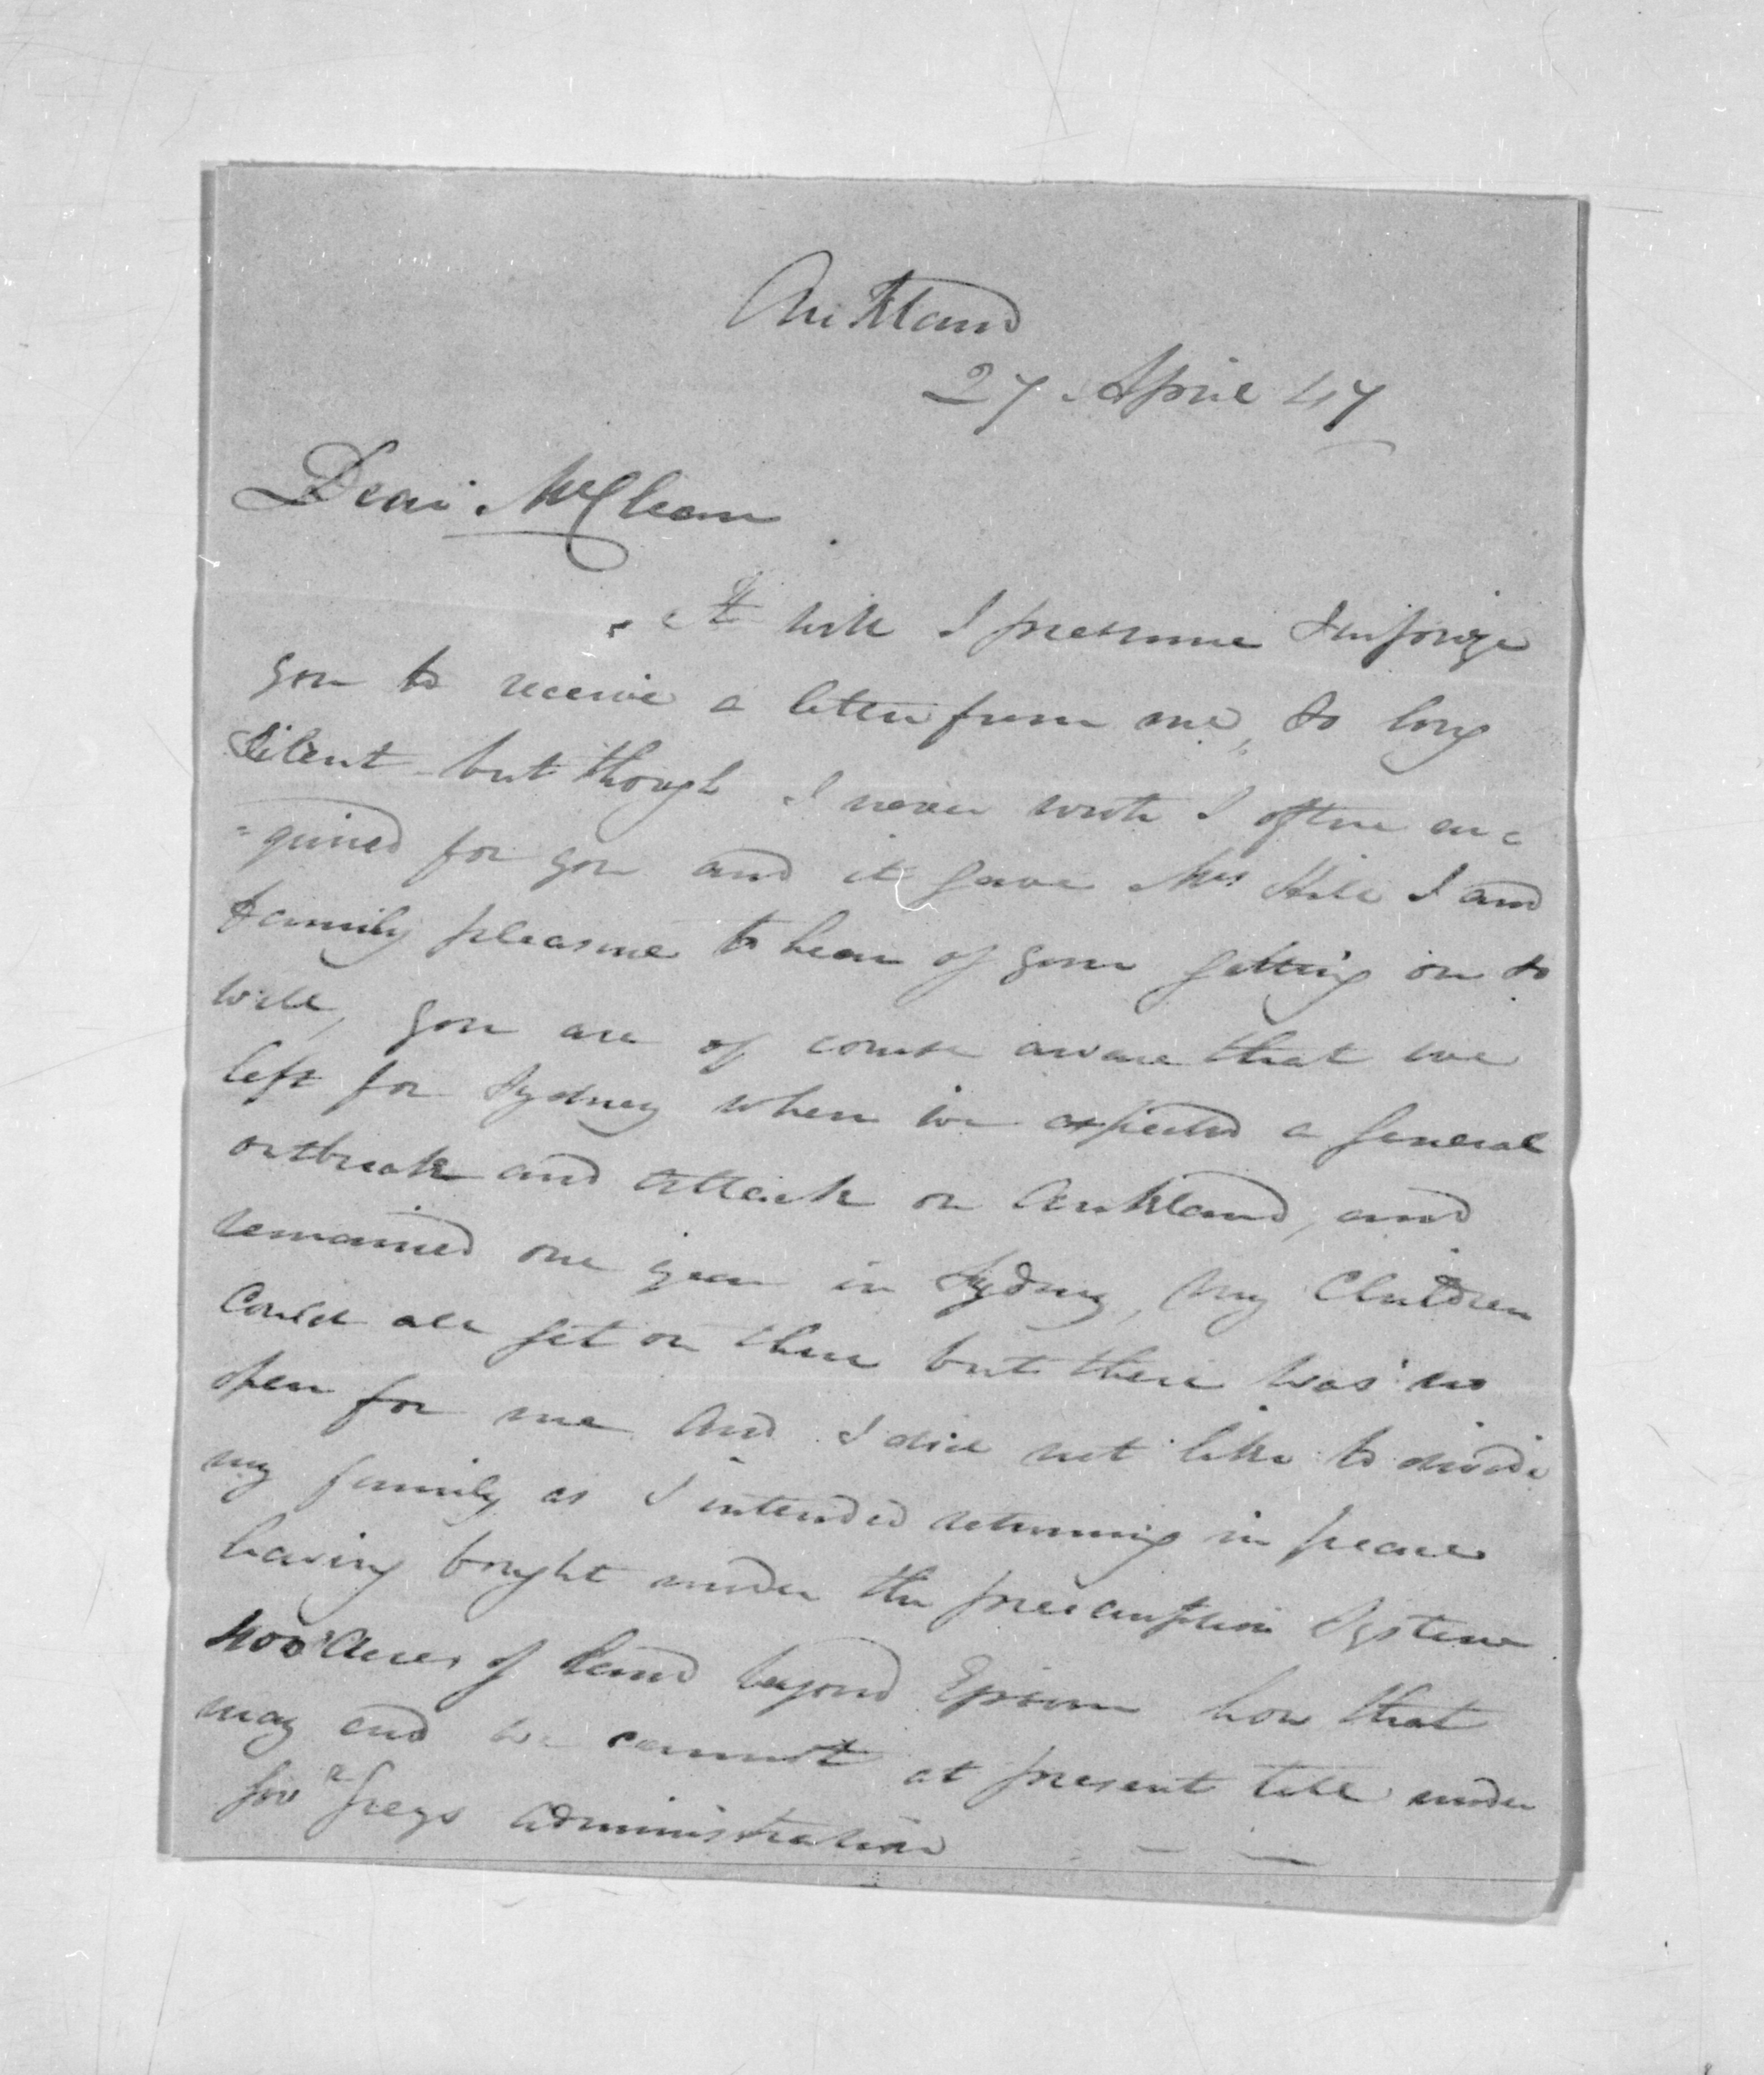 Auckland
27 April 47
Dear McClean
It will I presume surprize
you to receive a letter from me, so long
silent but though I never wrote I often en=
=quired for you and it gave Mrs I and
family pleasure to hear of your getting on so
well, you are of course aware that we
left for Sydney when we expected a general
outbreak and attack on Auckland, and
remained one year in Sydney, my Children
could all get on there but there was no
open for me and I did not like to divide
my family as I intended returning in peace
having bought under the preemption System
400 Acres of land beyond Epsom how that
may end we cannot at present tell under
Govr Greys administration